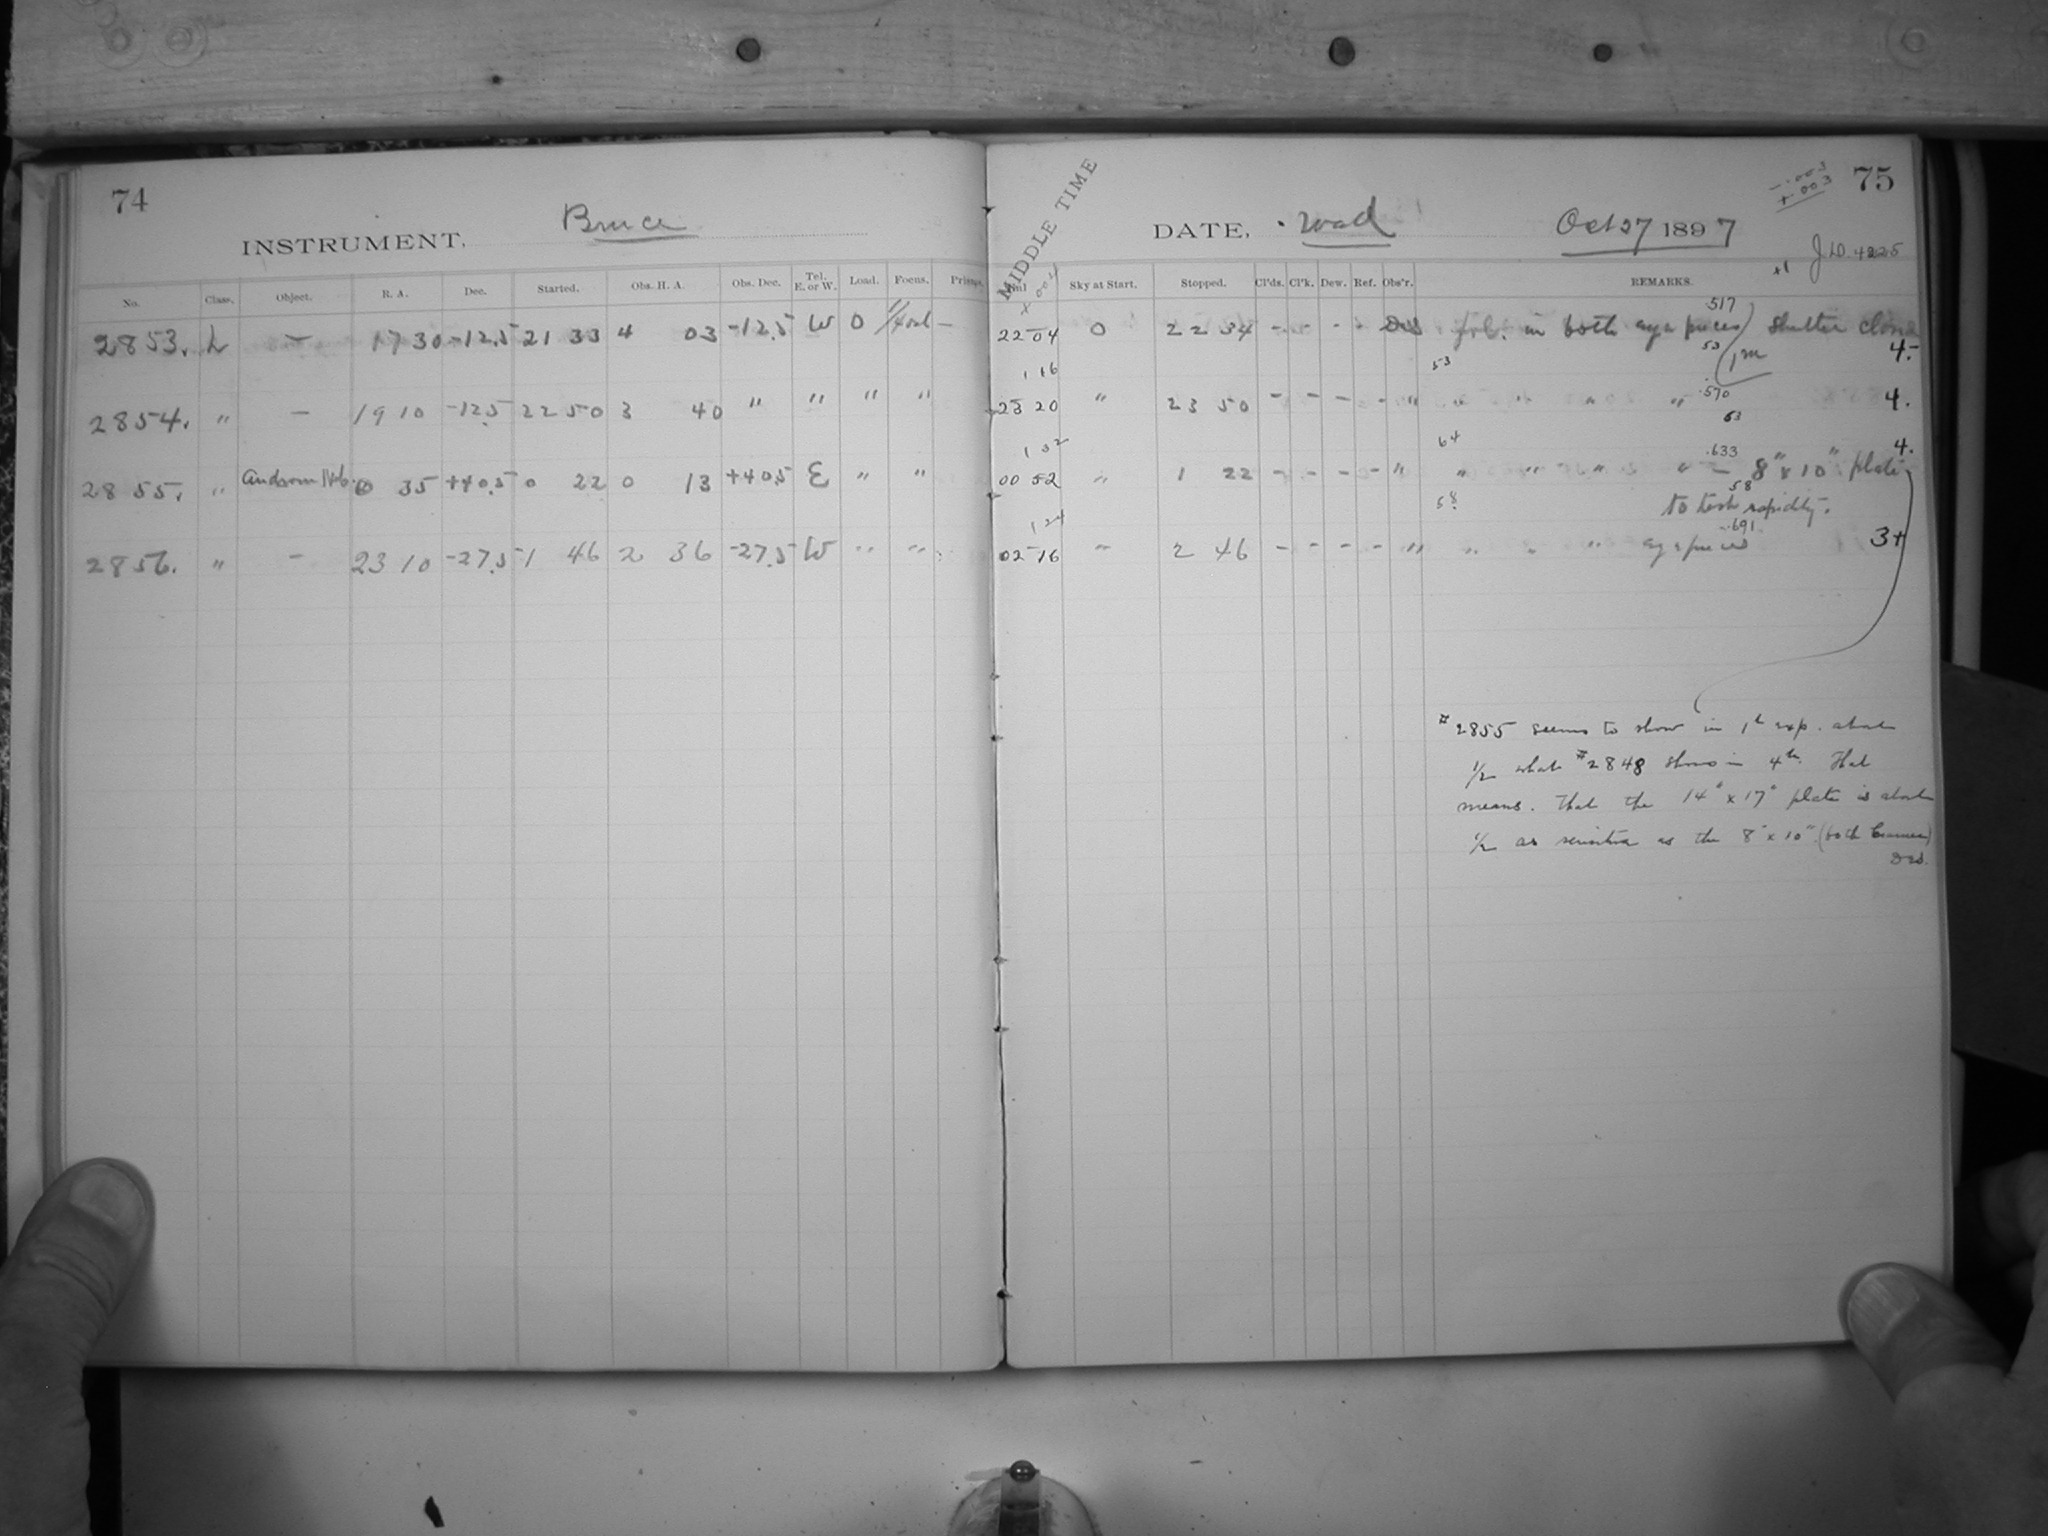 74
INSTRUMENT, Bruce
No. Class. Object. R. A. Dec. Started. Obs. H. A. Obs. Dec. Tel. E. or W. Load. Focus.
2853. L — 17 30 -12.5 21 33 4 03 -12.5 W 0
2854. " — 19 10 -12.5 22 50 3 40 " " " "
2855. " Androm Neb. 0 35 +40.5 0 22 0 13 +40.5 E " "
2856. " — 23 10 -27.5 1 46 2 36 -27.5 W " "
75
-.003
+.003
MIDDLE TIME
DATE, Wed Oct 27 1897
+1 J.D. 4225
Sky at Start. Stopped. Cl'ds. Cl'k. Dew. Ref. Obs'r. REMARKS.
.517
22 04 0 22 34 - - - - in both eye pieces shutter
53 53 1m 4.-
1 16
.570
23 20 " 23 50 - - - - " " " " " 4.
63
1 32 64 4.
.633
00 52 " 1 22 - - - - " " " " " — 8" x 10" plate
58 58
to test rapidity.
1 24
.691
02 16 " 2 46 - - - - " " " " eye pieces 3+
#2855 seems to show in 1h exp. about
1/2 what #2848 shows in 4h. That
means. that the 14" x 17" plate is about
1/2 as sensitive as the 8" x 10" (both Cramer)